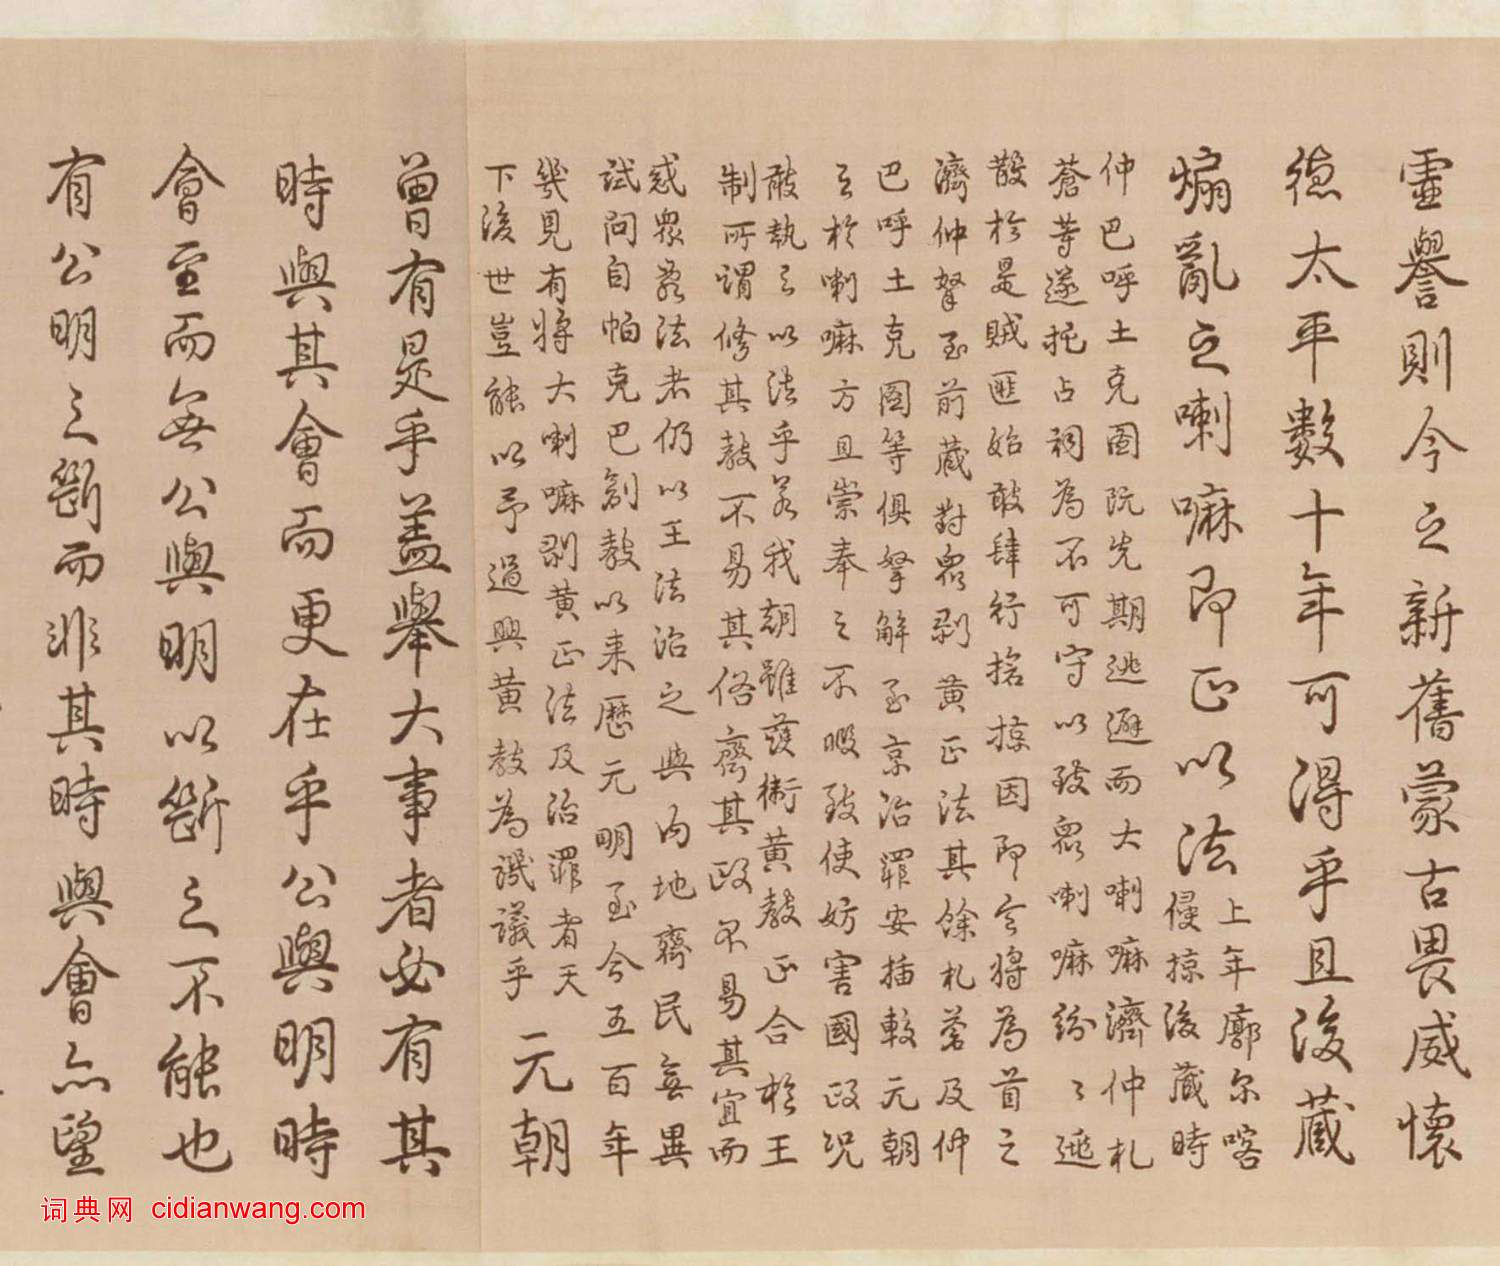 靈譽則今之新舊蒙古畏威懷
德太平數十年可得乎且後藏
煽亂之喇嘛即正以法
上年廓尔喀
侵掠後藏時
仲巴呼土克圖既先期逃避而大喇嘛濟仲札
蒼等遂托占詞為不可守以致眾喇嘛紛〻逃
散於是賊匪始敢肆行搶掠因即令將為首之
濟仲拏至前藏對眾剝黃正法其餘札蒼及仲
巴呼土克圖等俱拏解至京治罪安插較元朝
之於喇嘛方且崇奉之不暇致使妨害國政況
敢執之以法乎若我朝雖護衛黃教正合於王
制所謂修其教不易其俗齊其政不易其宜而
惑眾亂法者仍以王法治之與內地齊民無異
試問自帕克巴創教以來歷元明至今五百年
幾見有將大喇嘛剝黃正法及治罪者天
下後世豈能以予過興黃教為譏議乎
元朝
曾有是乎蓋舉大事者必有其
時與其會而更在乎公與明時
會至而無公與明以斷之不能也
有公明之斷而非其時與會亦望
词典网 cidianwang.com